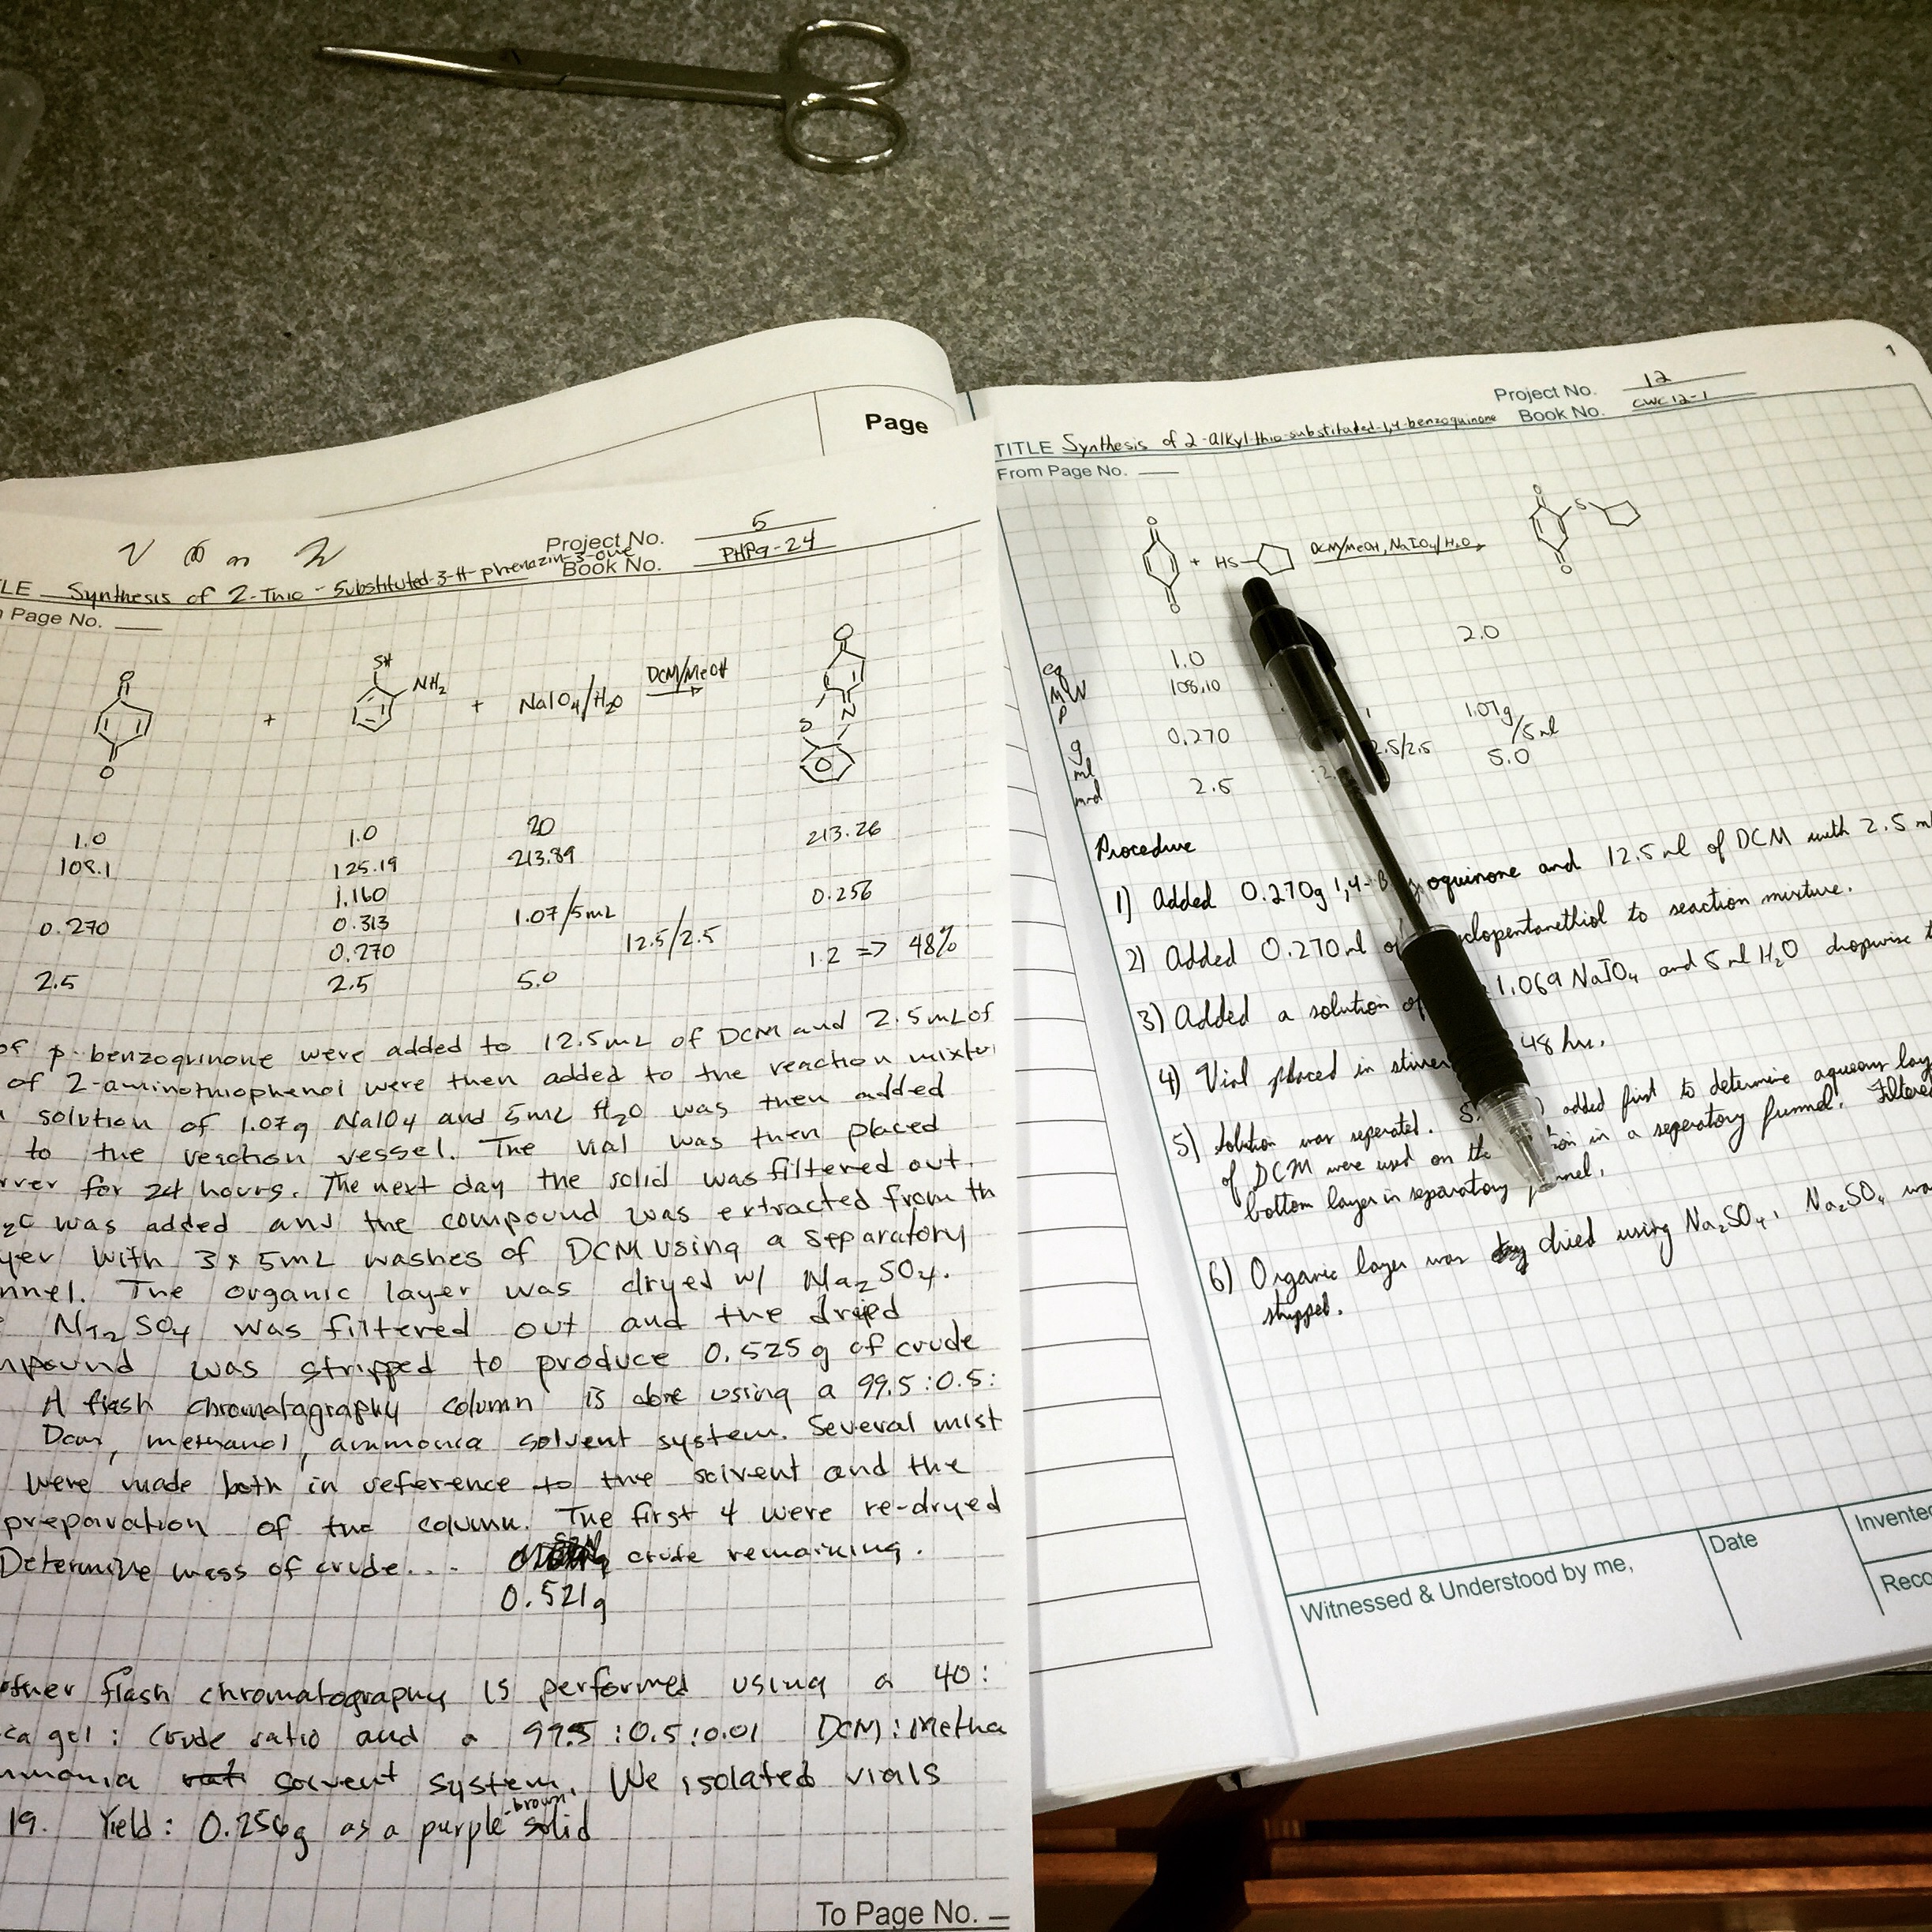 Page
Project No. 5
Book No. PHP9-24
LE Synthesis of 2-Thio-Substituted-3-H-phenazin-3-one
Page No.
O
O
+
SH
NH2
+
NaIO4/H2O
DCM/MeOH
O
N
S
1.0 1.0 20
108.1 125.19 213.89 213.26
1.160
0.270 0.313 1.07/5mL 0.256
0.270 12.5/2.5
2.5 2.5 5.0 1.2 => 48%
of p-benzoquinone were added to 12.5mL of DCM and 2.5mL of
of 2-aminothiophenol were then added to the reaction
solution of 1.07g NaIO4 and 5mL H2O was then added
to the reaction vessel. The vial was then placed
for 24 hours. The next day the solid was filtered out.
was added and the compound was extracted from th
yer with 3x5mL washes of DCM using a separatory
nnel. The organic layer was dryed w/ Na2SO4.
Na2SO4 was filtered out and the dried
mpound was stripped to produce 0.525g of crude
A flash chromatagraphy column is done using a 99.5:0.5:
methanol, ammonia solvent system. Several mist
were made both in reference to the solvent and the
preparation of the column. The first 4 were re-dryed
Determine mass of crude... crude remaining.
0.521g
other flash chromatography is performed using a 40:
ca gel: crude ratio and a 99.5:0.5:0.01 DCM:Metha
mmonia solvent system. We isolated vials
19. Yield: 0.256g as a purple-brown solid
To Page No.
1
Project No. 12
Book No. CWC12-1
TITLE Synthesis of 2-alkyl-thio-substituted-1,4-benzoquinone
From Page No.
O
O
+ HS
DCM/MeOH, NaIO4/H2O
O
S
O
eq 1.0 2.0
MW 108.10
ρ
g 0.270 1.07g/5ml
ml 2.5/2.5 5.0
mmol 2.5
Procedure
1) Added 0.270g 1,4-B oquinone and 12.5ml of DCM with 2.5 m
2) Added 0.270ml of clopentanethiol to reaction mixture.
3) Added a solution of 1.069 NaIO4 and 5ml H2O dropwise t
4) Vial placed in stirrer 48 hrs.
5) Solution was seperated. added first to determine aqueous lay
of DCM were used on the in a seperatory funnel. Filtered
bottom layer in separatory nnel.
6) Organic layer was dried using Na2SO4. Na2SO4 wa
stripped.
Witnessed & Understood by me,
Date
Invente
Reco